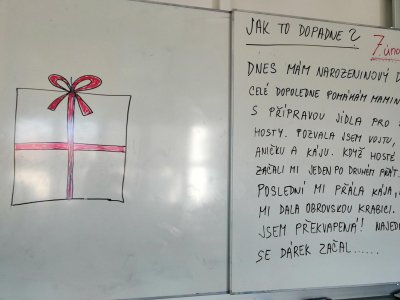 JAK TO DOPADNE ?
7. úno
DNES MÁM NAROZENINOVÝ D
CELÉ DOPOLEDNE POMÁHÁM MAMIN
S PŘÍPRAVOU JÍDLA PRO
HOSTY. POZVALA JSEM VOJTU,
ANIČKU A KÁJU. KDYŽ HOSTÉ
ZAČALI MI JEDEN PO DRUHÉM PŘÁT.
POSLEDNÍ MI PŘÁLA KÁJA,
MI DALA OBROVSKOU KRABICI.
JSEM PŘEKVAPENÁ! NAJED
SE DÁREK ZAČAL......